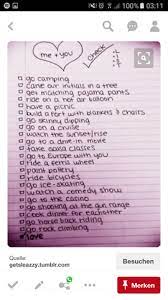 100% 03:11
me + you
check
go camping
carve our initials in a tree
get matching pajama pants
ride on a hot air balloon
have a picnic
build a fort with blankets & chairs
go skinny dipping
go on a cruise
watch the sunset/rise
go to a drive-in movie
take salsa classes
go to Europe with you
ride a ferris wheel
paint pottery
ride bicycles
go ice-skating
watch a comedy show
go to the casino
go shooting at the gun range
cook dinner for eachother
go horse back riding
go rock climbing
love
Quelle:
getsleazzy.tumblr.com
Besuchen
Merken